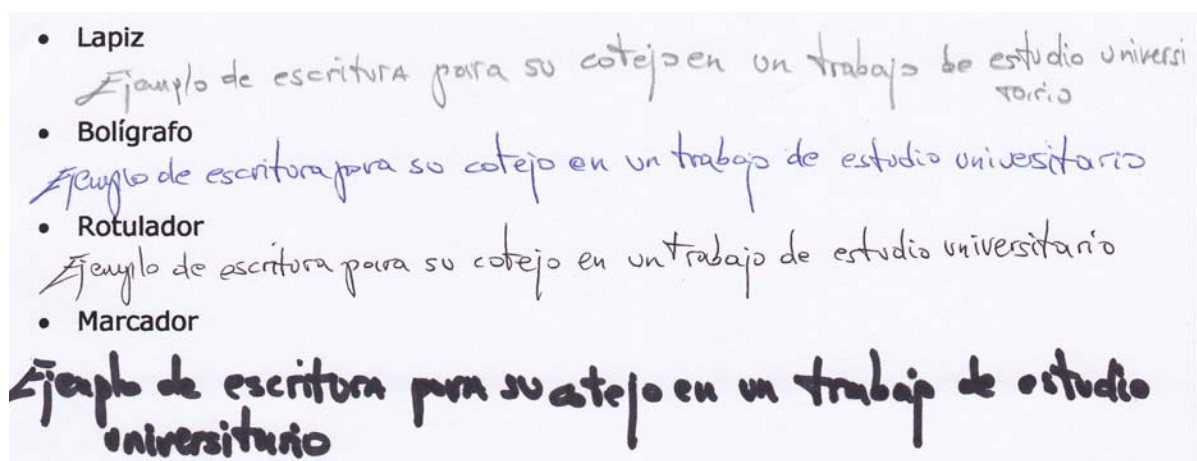 • Lapiz
Ejemplo de escritura para su cotejo en un trabajo de estudio universi
tario
• Bolígrafo
Ejemplo de escritura para su cotejo en un trabajo de estudio univesitario
• Rotulador
Ejemplo de escritura para su cotejo en un trabajo de estudio universitario
• Marcador
Ejemplo de escritura para su cotejo en un trabajo de estudio
universitario